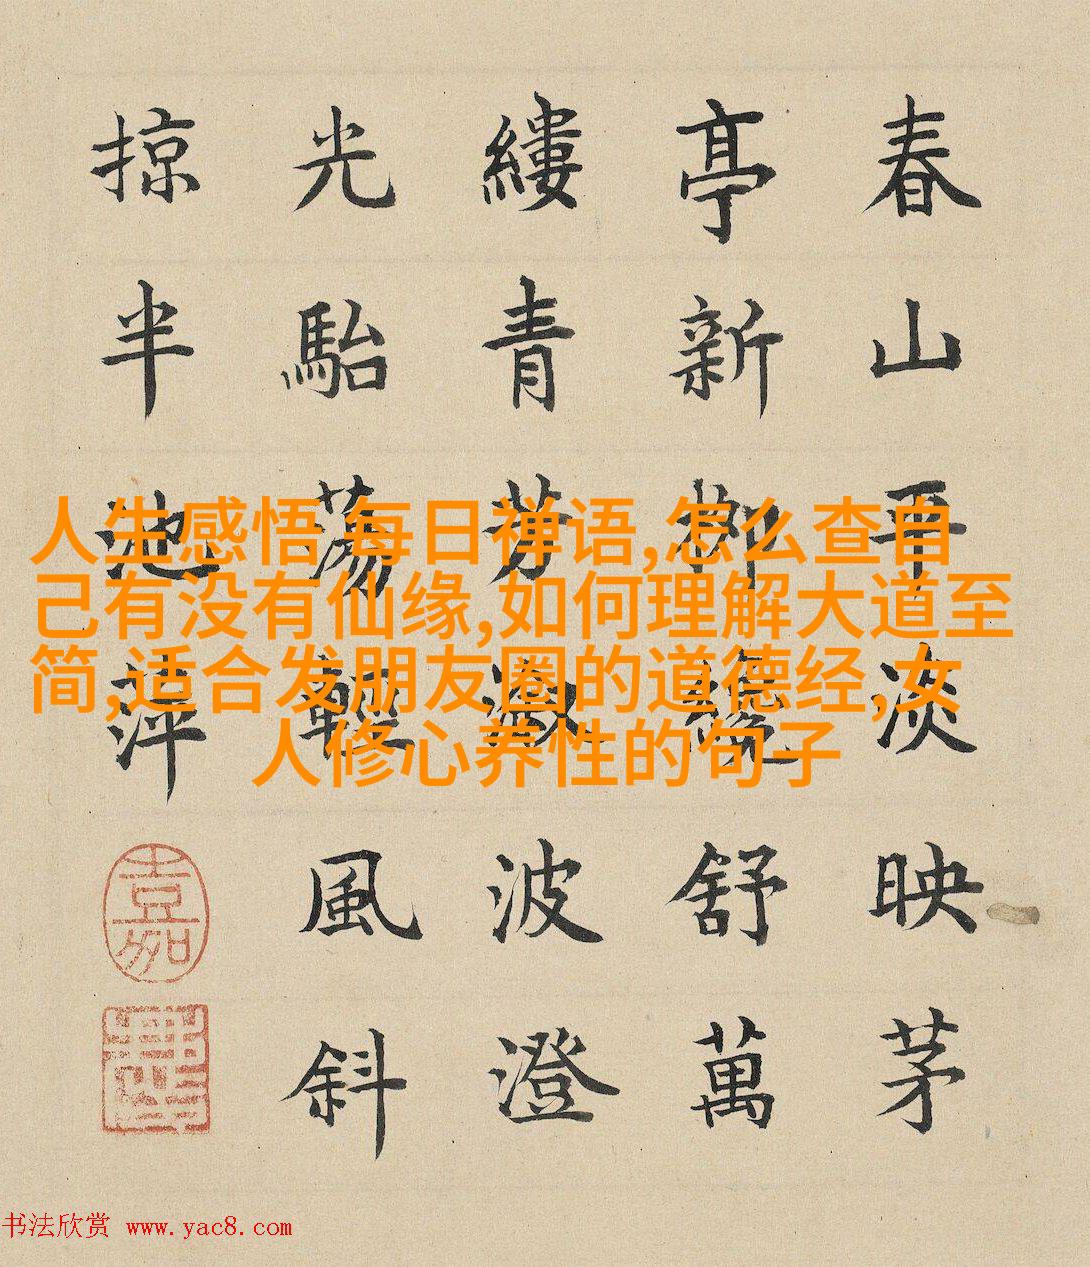 春山平淡映茅
亭新柳纔舒萬
縷青芳漵波澄
光駘蕩輕風斜
掠半池萍
嘉
人生感悟 每日禅语,怎么查自
己有没有仙缘,如何理解大道至
简,适合发朋友圈的道德经,女
人修心养性的句子
书法欣赏 www.yac8.com